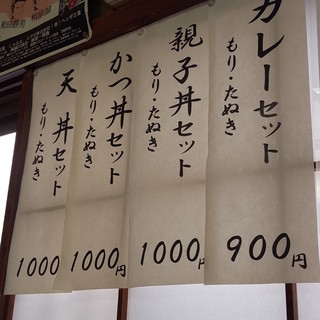 カレーセット
もり・たぬき
900円
親子丼セット
もり・たぬき
1000円
かつ丼セット
もり・たぬき
1000円
天丼セット
もり・たぬき
1000